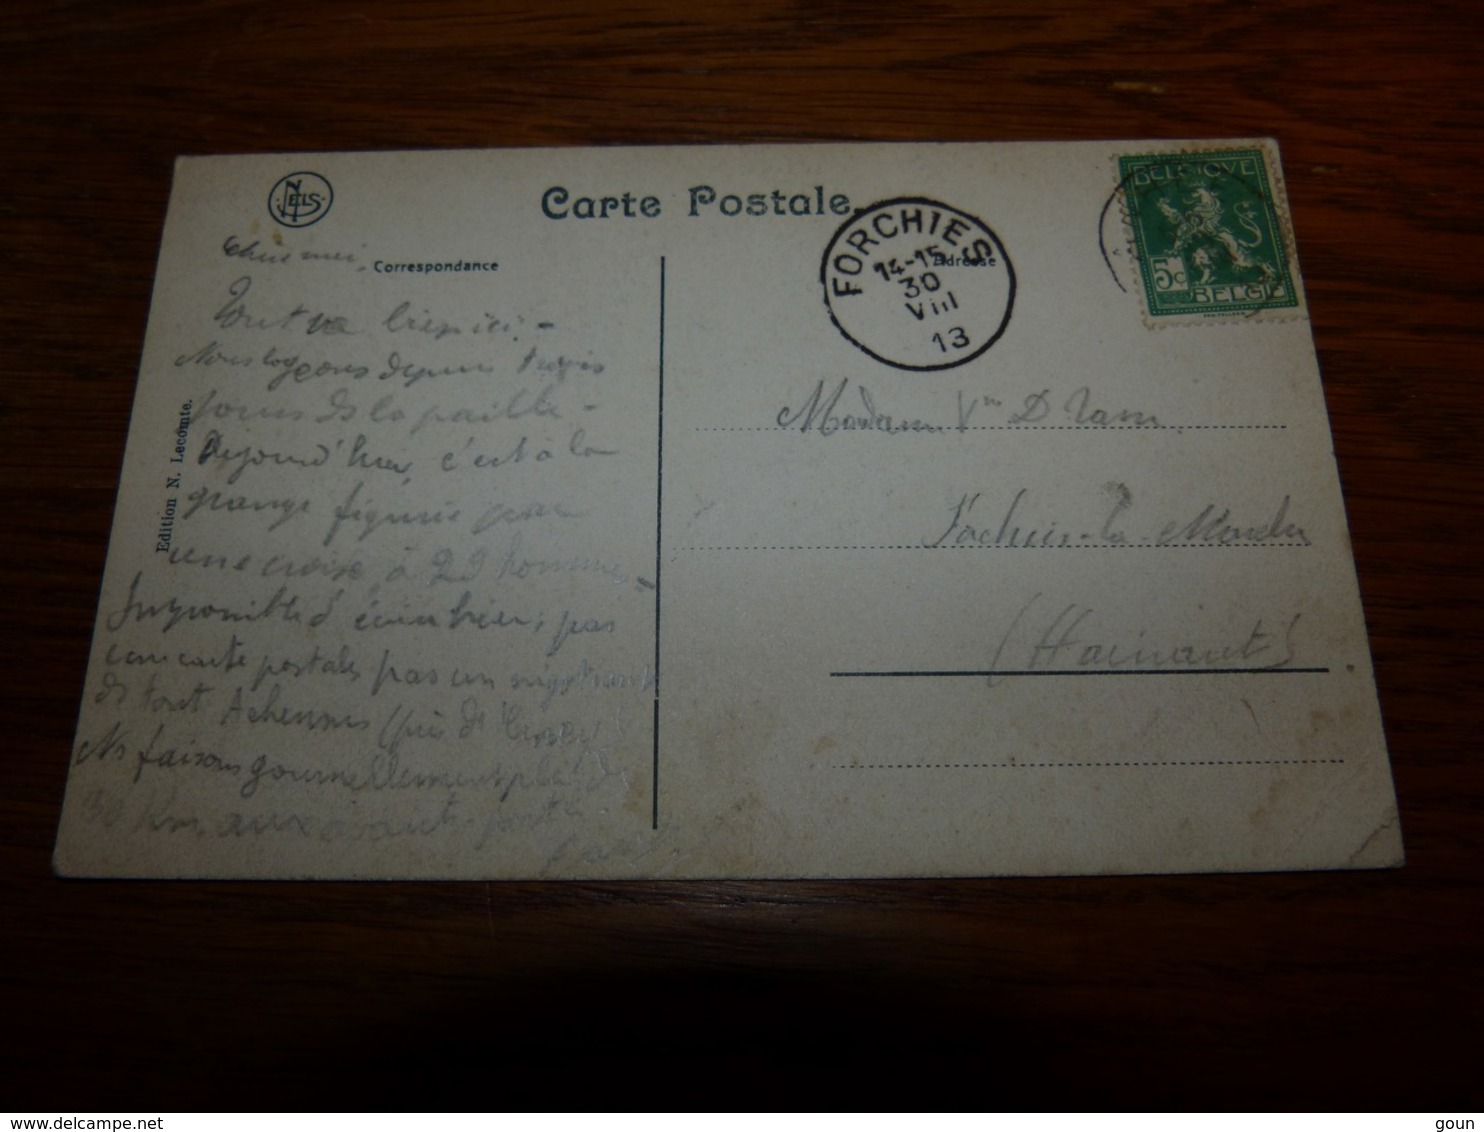 NELS
Carte Postale.
Correspondance
Adresse
FORCHIES
14-15
30
VIII
13
BELGIQUE
5c
BELGIE
Edition N. Lecomte.
Tout va bien ici -
Nous logeons depuis trois
jours de la paille -
Aujourd'hui, c'est à la
grange figurée par
une croix, à 29 hommes -
Impossible d'écrire bien; pas
une carte postale, pas un
de tout Achennes (près de
Ns faisons journellement plus de
30 Km, aux avants-postes
Madame Vve
Forchies-la-Marche
(Hainaut)
www.delcampe.net
goun